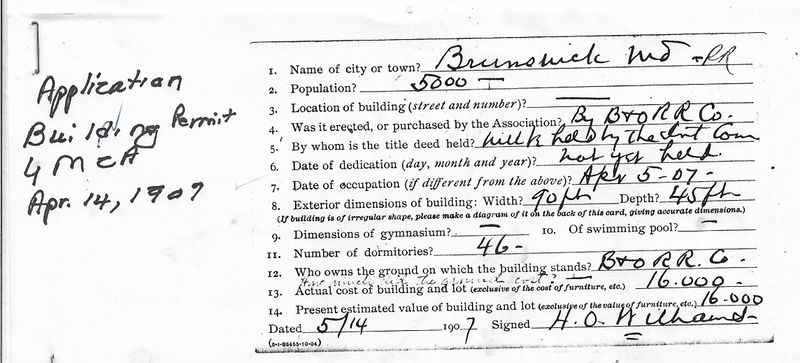 Application
Building Permit
YMCA
Apr. 14, 1907
1. Name of city or town? Brunswick Md - RR
2. Population? 5000 —
3. Location of building (street and number)? —
4. Was it erected, or purchased by the Association? By B&O RR Co.
5. By whom is the title deed held? will be held by the Int Com
6. Date of dedication (day, month and year)? not yet held.
7. Date of occupation (if different from the above)? Apr 5-07-
8. Exterior dimensions of building: Width? 90 ft Depth? 45 ft
(If building is of irregular shape, please make a diagram of it on the back of this card, giving accurate dimensions.)
9. Dimensions of gymnasium? — 10. Of swimming pool? —
11. Number of dormitories? 46-
12. Who owns the ground on which the building stands? B&O RR. Co.
How much did the ground cost? —
13. Actual cost of building and lot (exclusive of the cost of furniture, etc.) 16.000 -
14. Present estimated value of building and lot (exclusive of the value of furniture, etc.) 16.000
Dated 5/14 1907 Signed H. O. Williams